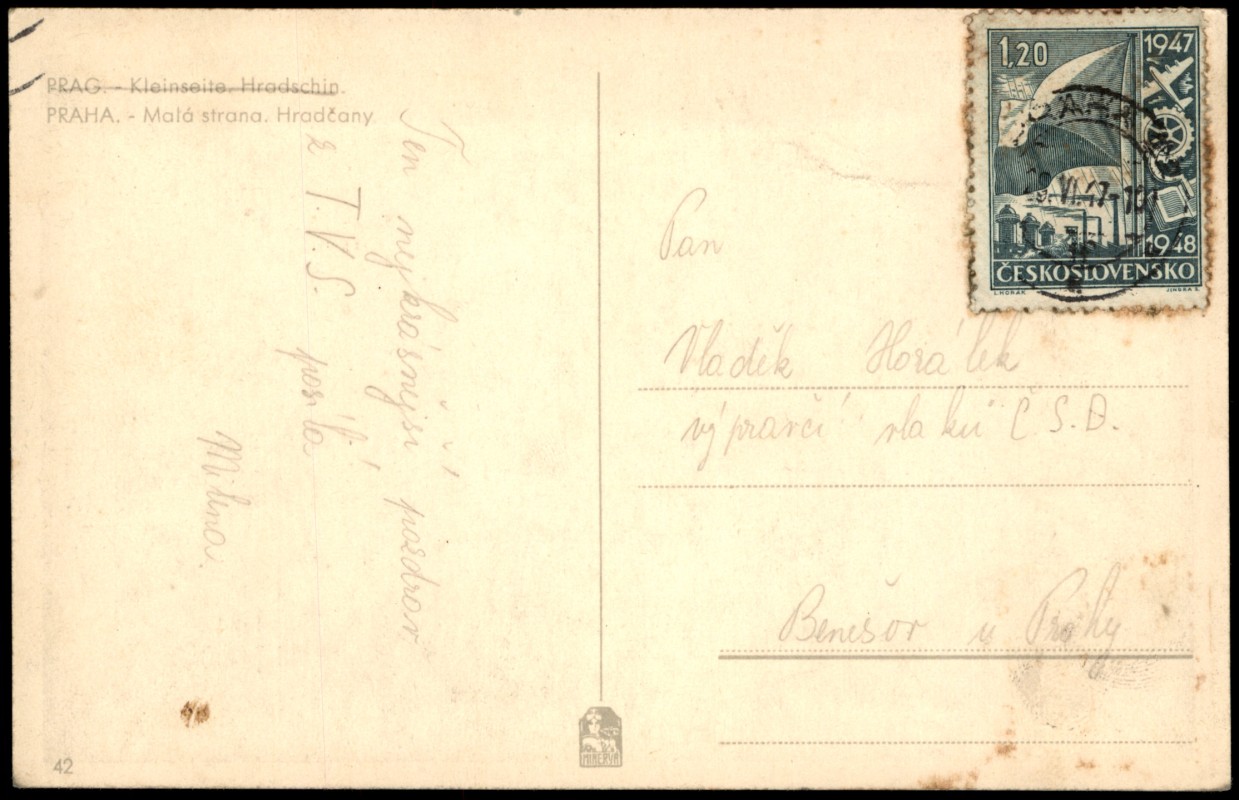 PRAG. - Kleinseite. Hradschin.
PRAHA. - Malá strana. Hradčany
Ten nejkrásnější pozdrav
z T.V.S.
posílá
Milena.
1,20
1947
1948
ČESKOSLOVENSKO
L. HORÁK
JINDRA S.
PRAHA
29.VI.47-10
Pan
Vladěk Horálek
výpravčí vlaků Č.S.D.
Benešov u Prahy
MINERVA
42